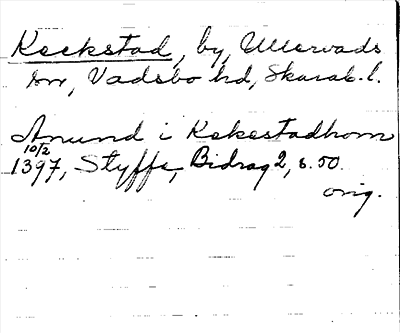 Keckstad, by, Ullervads
sn, Vadsbo hd, Skarab. l.
Anund i Kekestadhom
10/2
1397, Styffe, Bidrag 2, s. 50.
orig.